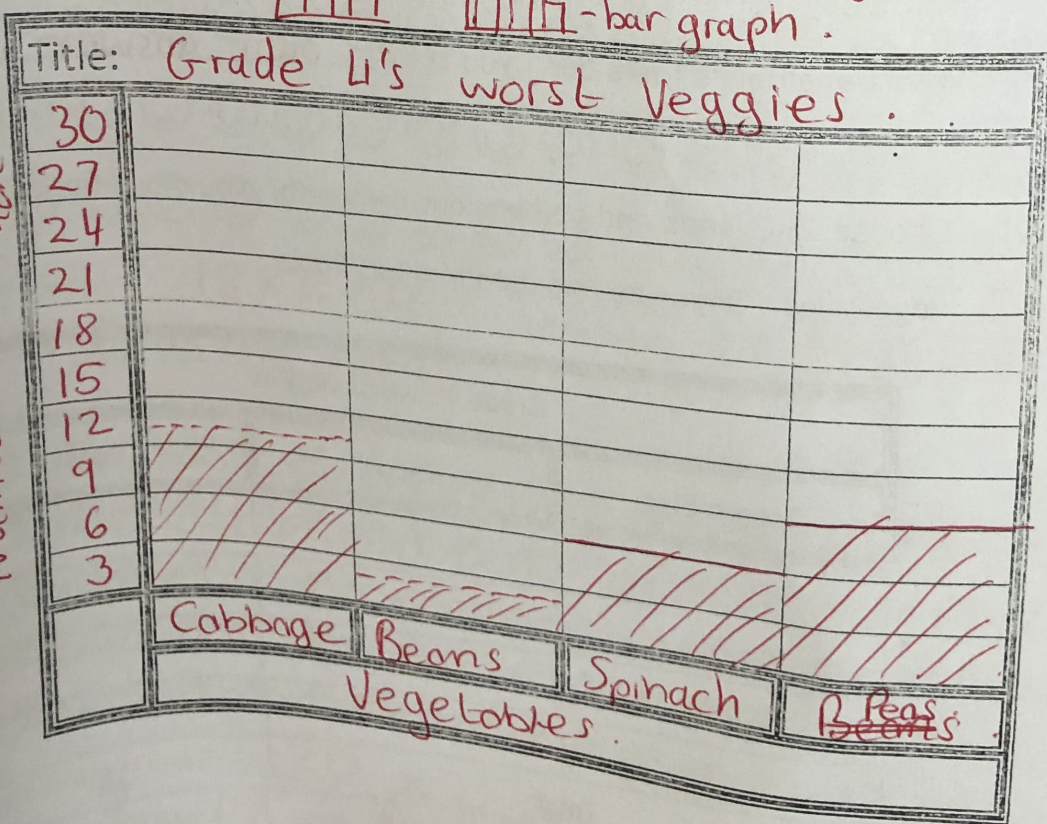 -bar graph.
Title: Grade 4's worst Veggies.
30
27
24
21
18
15
12
9
6
3
Cabbage Beans Spinach Peas.
Vegetables.